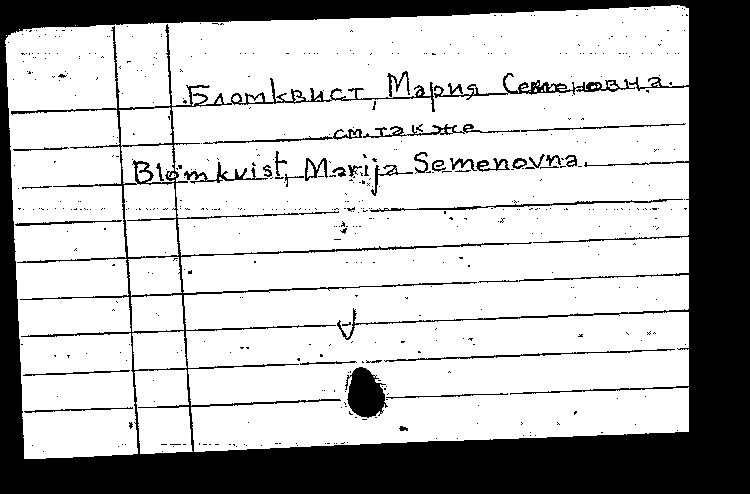 Бломквист, Мария Семеновна.
см. также
Blomkvist, Marija Semenovna.